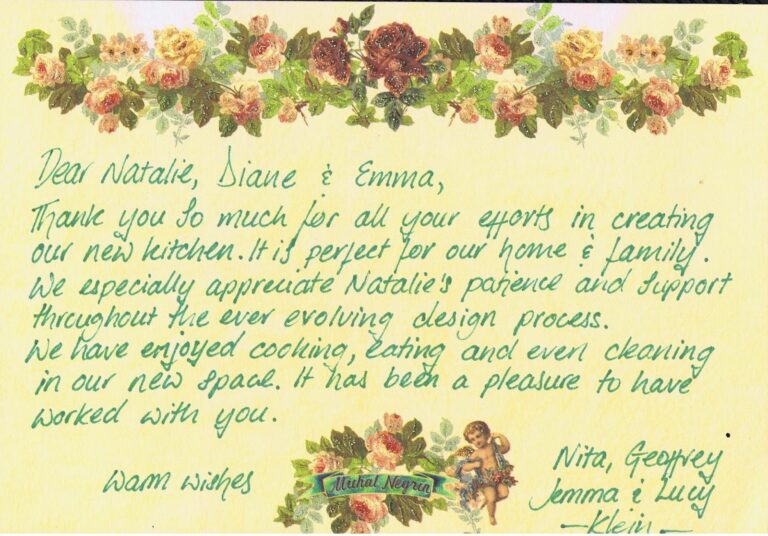 Dear Natalie, Diane & Emma,
Thank you so much for all your efforts in creating
our new kitchen. It is perfect for our home & family.
We especially appreciate Natalie's patience and support
throughout the ever evolving design process.
We have enjoyed cooking, eating and even cleaning
in our new space. It has been a pleasure to have
worked with you.
Warm wishes
Michal Negrin
Nita, Geoffrey
Jemma & Lucy
- Klein -